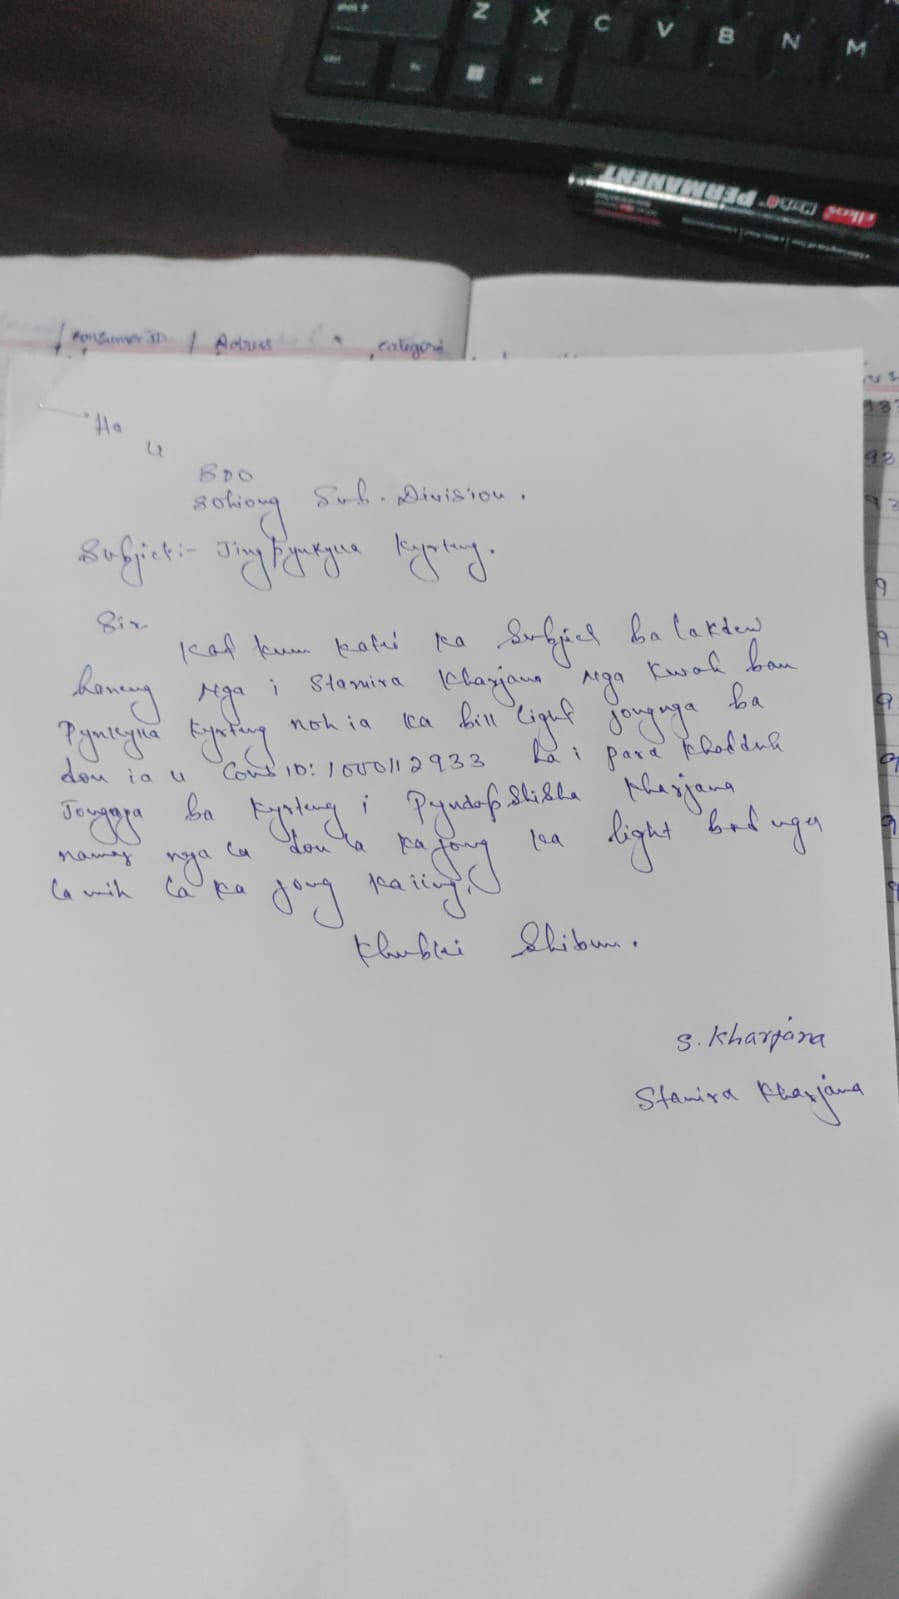 shift
Z X C V B N M
ctrl
fn
alt
elkos Marko PERMANENT
Consumer ID / Address categore
Ha
U
SDO
Sohiong Sub. Division.
Subject:- Jingpynkylla Kyrteng.
Sir
Kat kum katei ka Subject ba lakdew
haneng nga i Stamira Kharjana nga kwah ban
Pynkylla Kyrteng noh ia ka bill light jongnga ba
don ia u Cons ID: 1000112933 ha i para khadduh
Jongnga ba kyrteng i Pyndapshisha Kharjana
namar nga la don la ka jong ka light bad nga
la mih la ka jong ka iing.
Khublei Shibun.
S. Kharjana
Stamira Kharjana